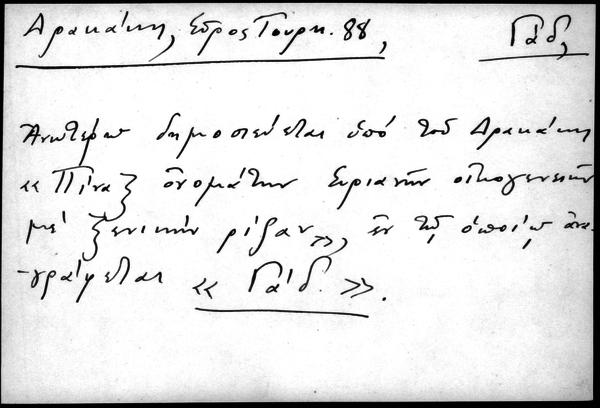 Δρακάκη, Σῦρος Τουρκ. 88,
Γάδ,
Ἀνωτέρω δημοσιεύεται ὑπό τοῦ Δρακάκη
« Πίναξ ὀνομάτων Συριανῶν οἰκογενειῶν
μέ ξενικήν ρίζαν», ἐν τῷ ὁποίῳ ἀνα-
-γράφεται « Γάδ. ».